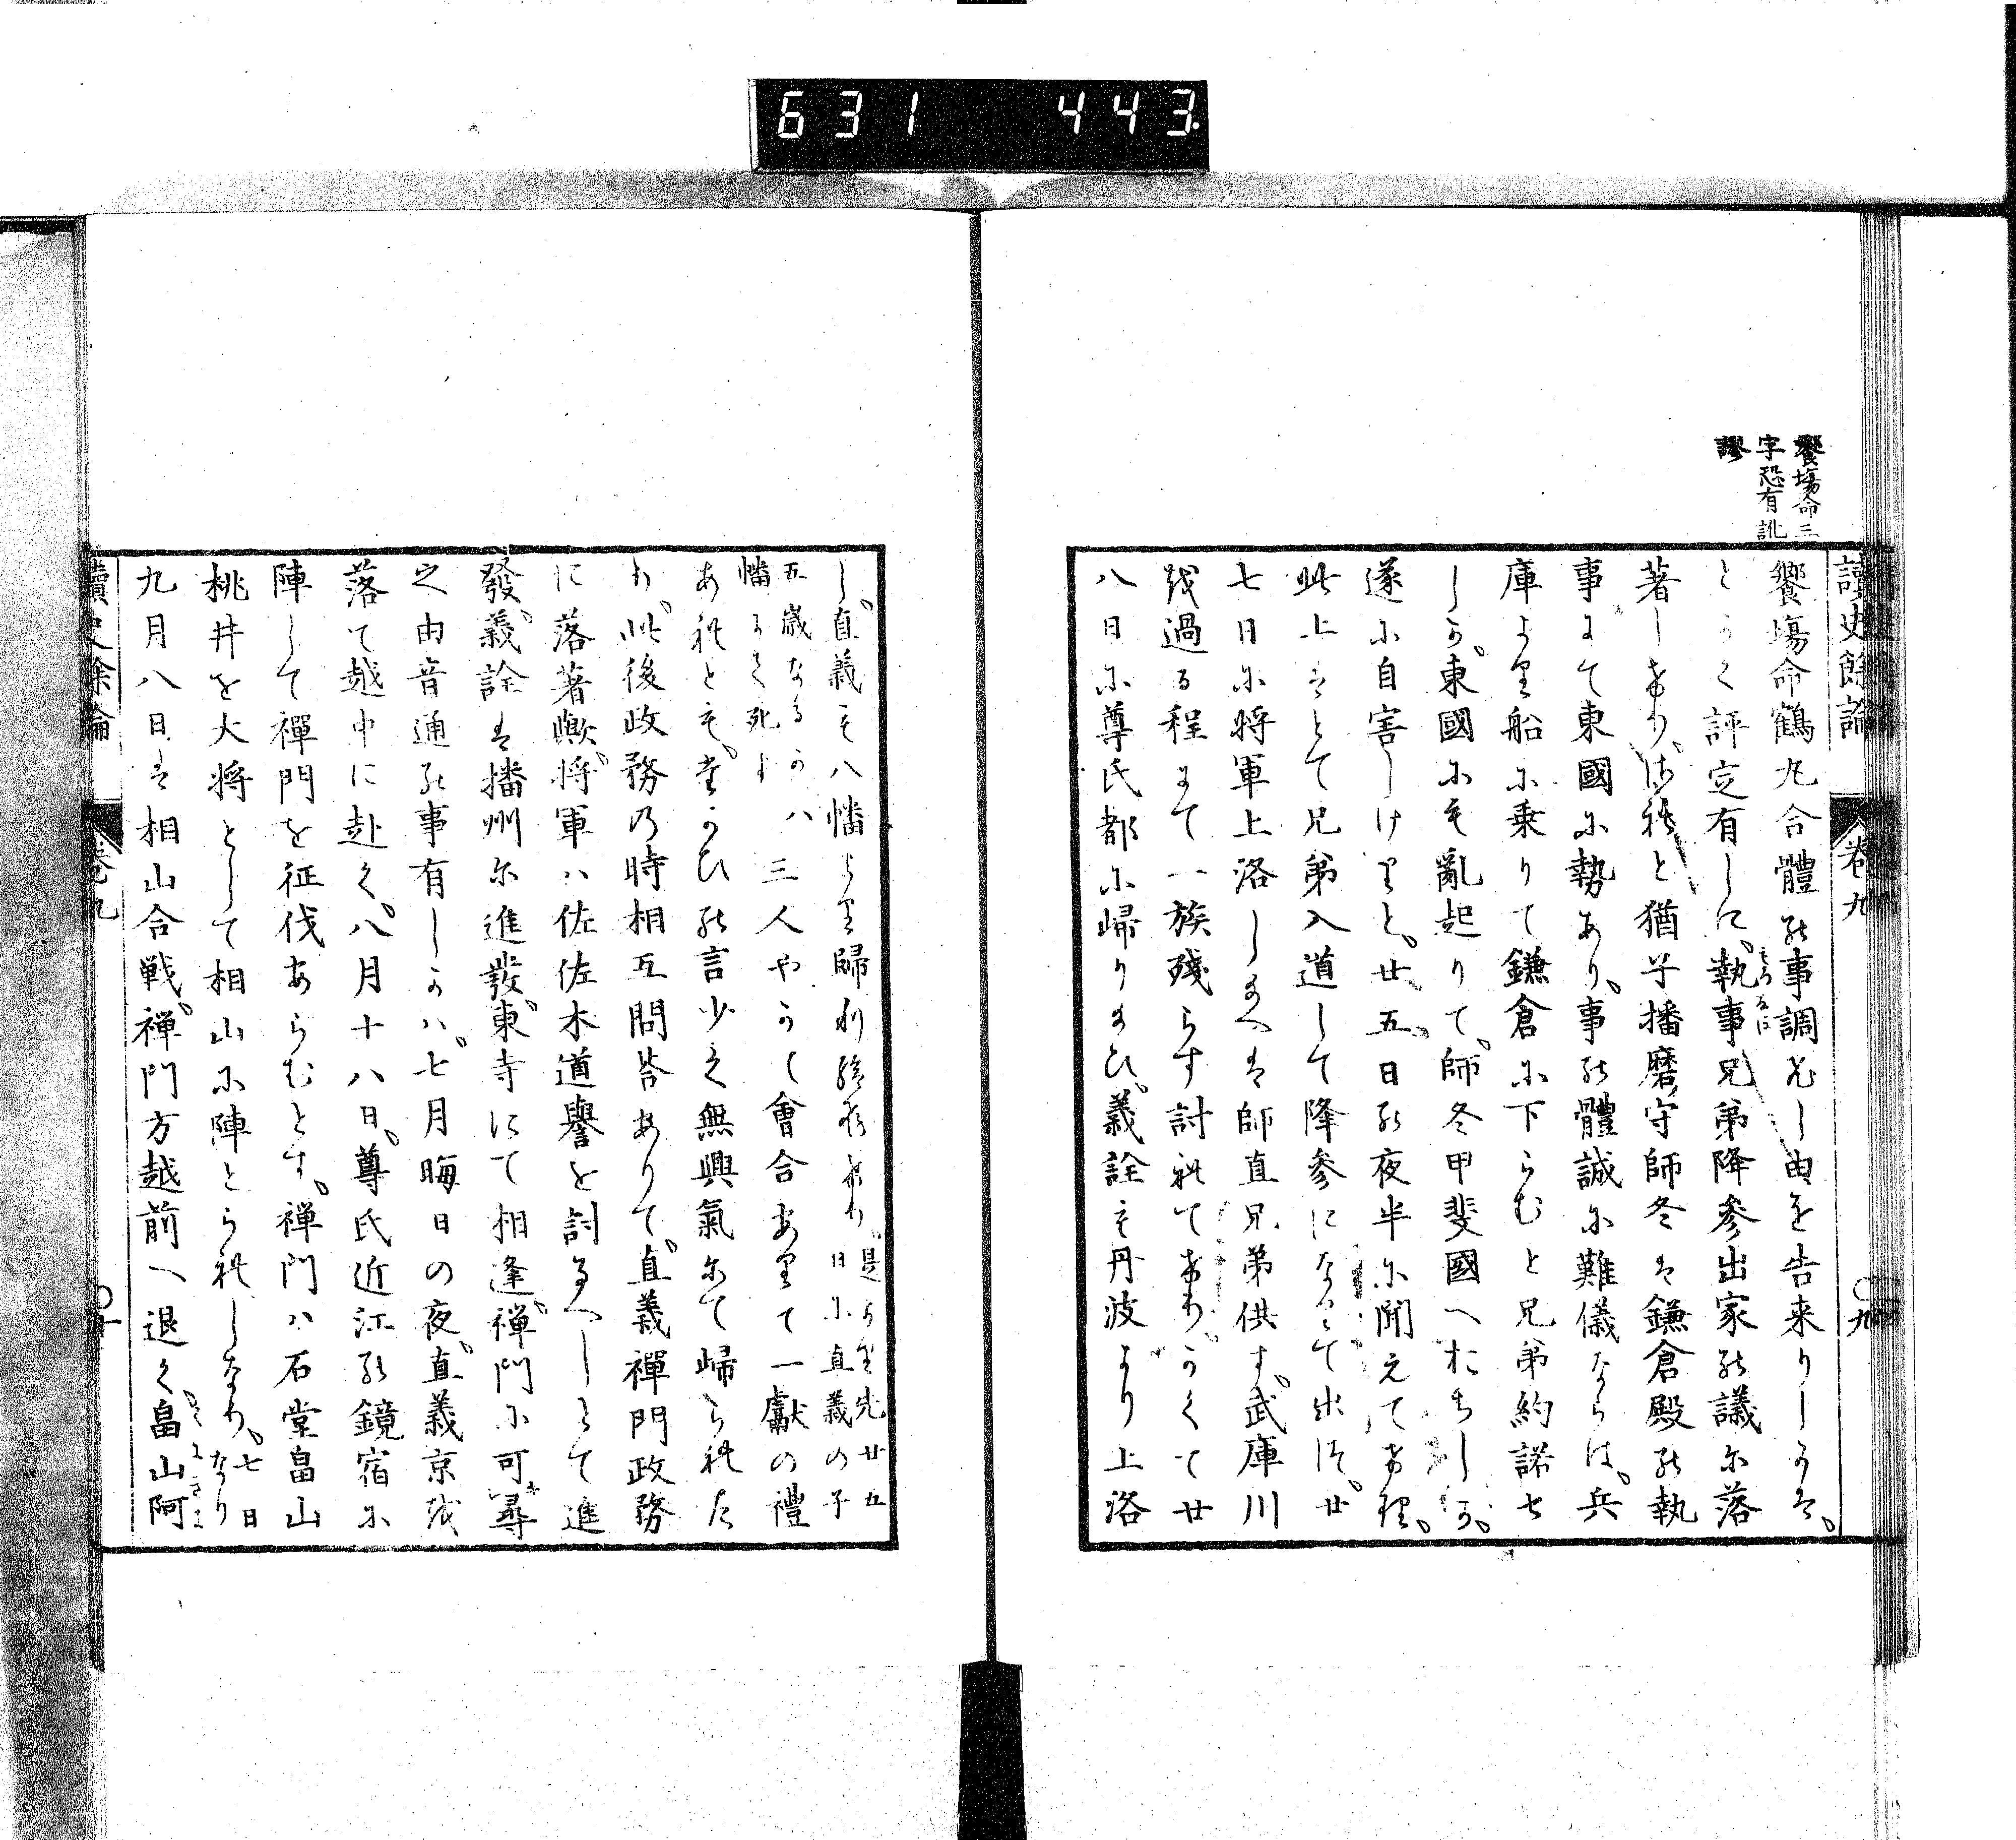 631 443
讀史餘論 卷九 ○九
饗塲命三
字恐有訛
謬
饗塲命鶴丸合體の事調ひし由を告来りしかは、
とかく評定有しに、執事兄弟降参出家の議に落
著しけり、され共猶子播磨守師冬は鎌倉殿の執
事にて東國に勢あり、事の體誠に難儀ならは、兵
庫より船に乗りて鎌倉に下らむと兄弟約諾せ
しか、東國にも亂起りて、師冬甲斐國へおちしか、
遂に自害しけりと、廿五日の夜半に聞えてけれ、
此上はとて兄弟入道して降参になつて出つ、廿
七日に将軍上洛し給へは師直兄弟供す、武庫川
を過る程にて一族殘らす討れてけり、かくて廿
八日に尊氏都に帰り給ひ、義詮も丹波より上洛
し、直義も八幡より歸り給ひけり、是より先廿五
日に直義の子
五歳なるか八
幡にて死す
三人やかて會合ありて一獻の禮
あれとも、たかひの言少く無興氣にて帰られた
り、此後政務の時相互問答ありて、直義禪門政務
に落著歟、将軍ハ佐佐木道譽を討へしとて進
發、義詮は播州に進發、東寺にて相逢、禪門に可尋
之由音通の事有しかハ、七月晦日の夜、直義京を
落て越中に赴く、八月十八日、尊氏近江の鏡宿に
陣して禪門を征伐あらむとす、禪門ハ石堂畠山
桃井を大将として相山に陣とられしなり、七日
なり
九月八日は相山合戦、禅門方越前へ退く、畠山阿
讀史餘論 卷九 ○十